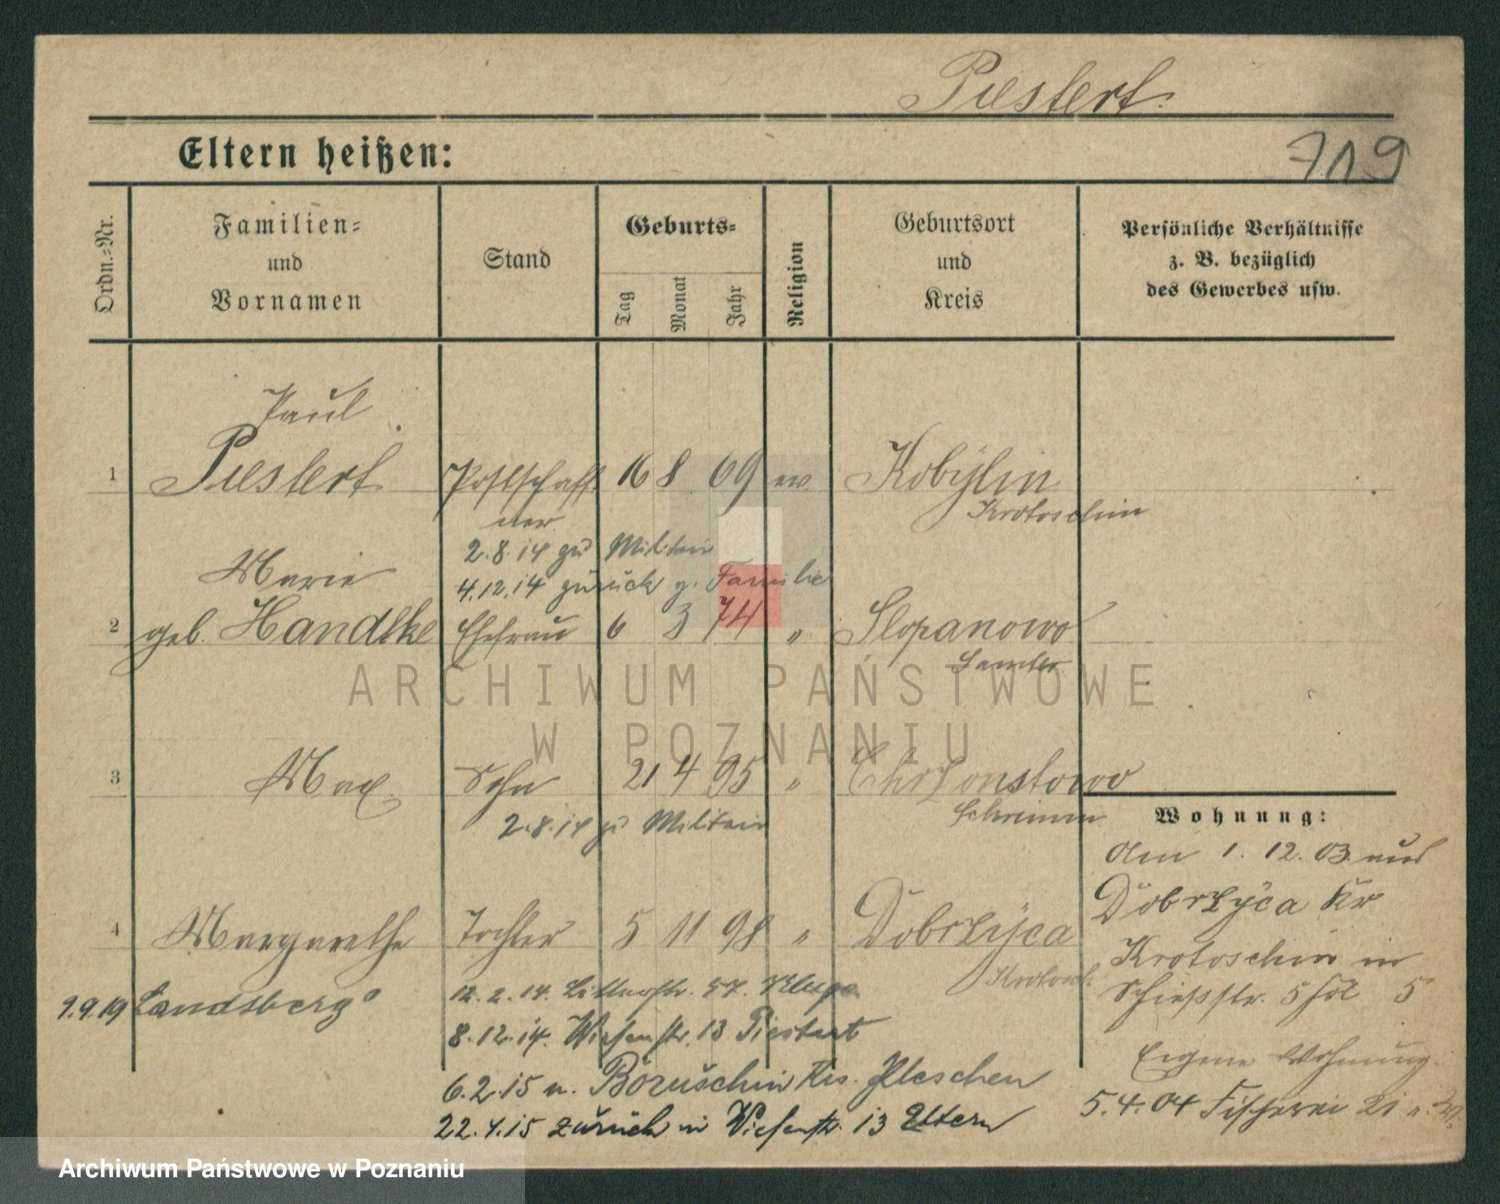 Piestert.
719
Eltern heißen:
Ordn.-Nr.
Familien-
und
Vornamen
Stand
Geburts-
Tag
Monat
Jahr
Religion
Geburtsort
und
Kreis
Persönliche Verhältnisse
z. B. bezüglich
des Gewerbes usw.
Paul
1 Piestert Postschaff 16 8 69 ev. Kobylin
ner Krotoschin
2.8.14 zu Militair
Marie 4.12.14 zurück z. Familie
2 geb. Handtke Ehefrau 6 3 74 " Slopanowo
Samter
ARCHIWUM PAŃSTWOWE
W POZNANIU
3 Max Sohn 21 4 95 " Chrzonstowo
Schrimm
2.8.14 zu Militair
Wohnung:
Am 1. 12. 03 aus
Dobrzyca Kr
Krotoschin in
Schießstr. 5 bei 5
Eigene Wohnung.
5.4.04 Fischerei
4 Margarethe Tochter 5 11 98 " Dobrzyca
Krotosch
1.9.19 Landsberg
12.2.14. 57. Kluge
8.12.14. Wiesenstr. 13 Piestert
6.2.15 n. Boruschin Krs. Pleschen
22.4.15 zurück in Wiesenstr. 13 Eltern
Archiwum Państwowe w Poznaniu